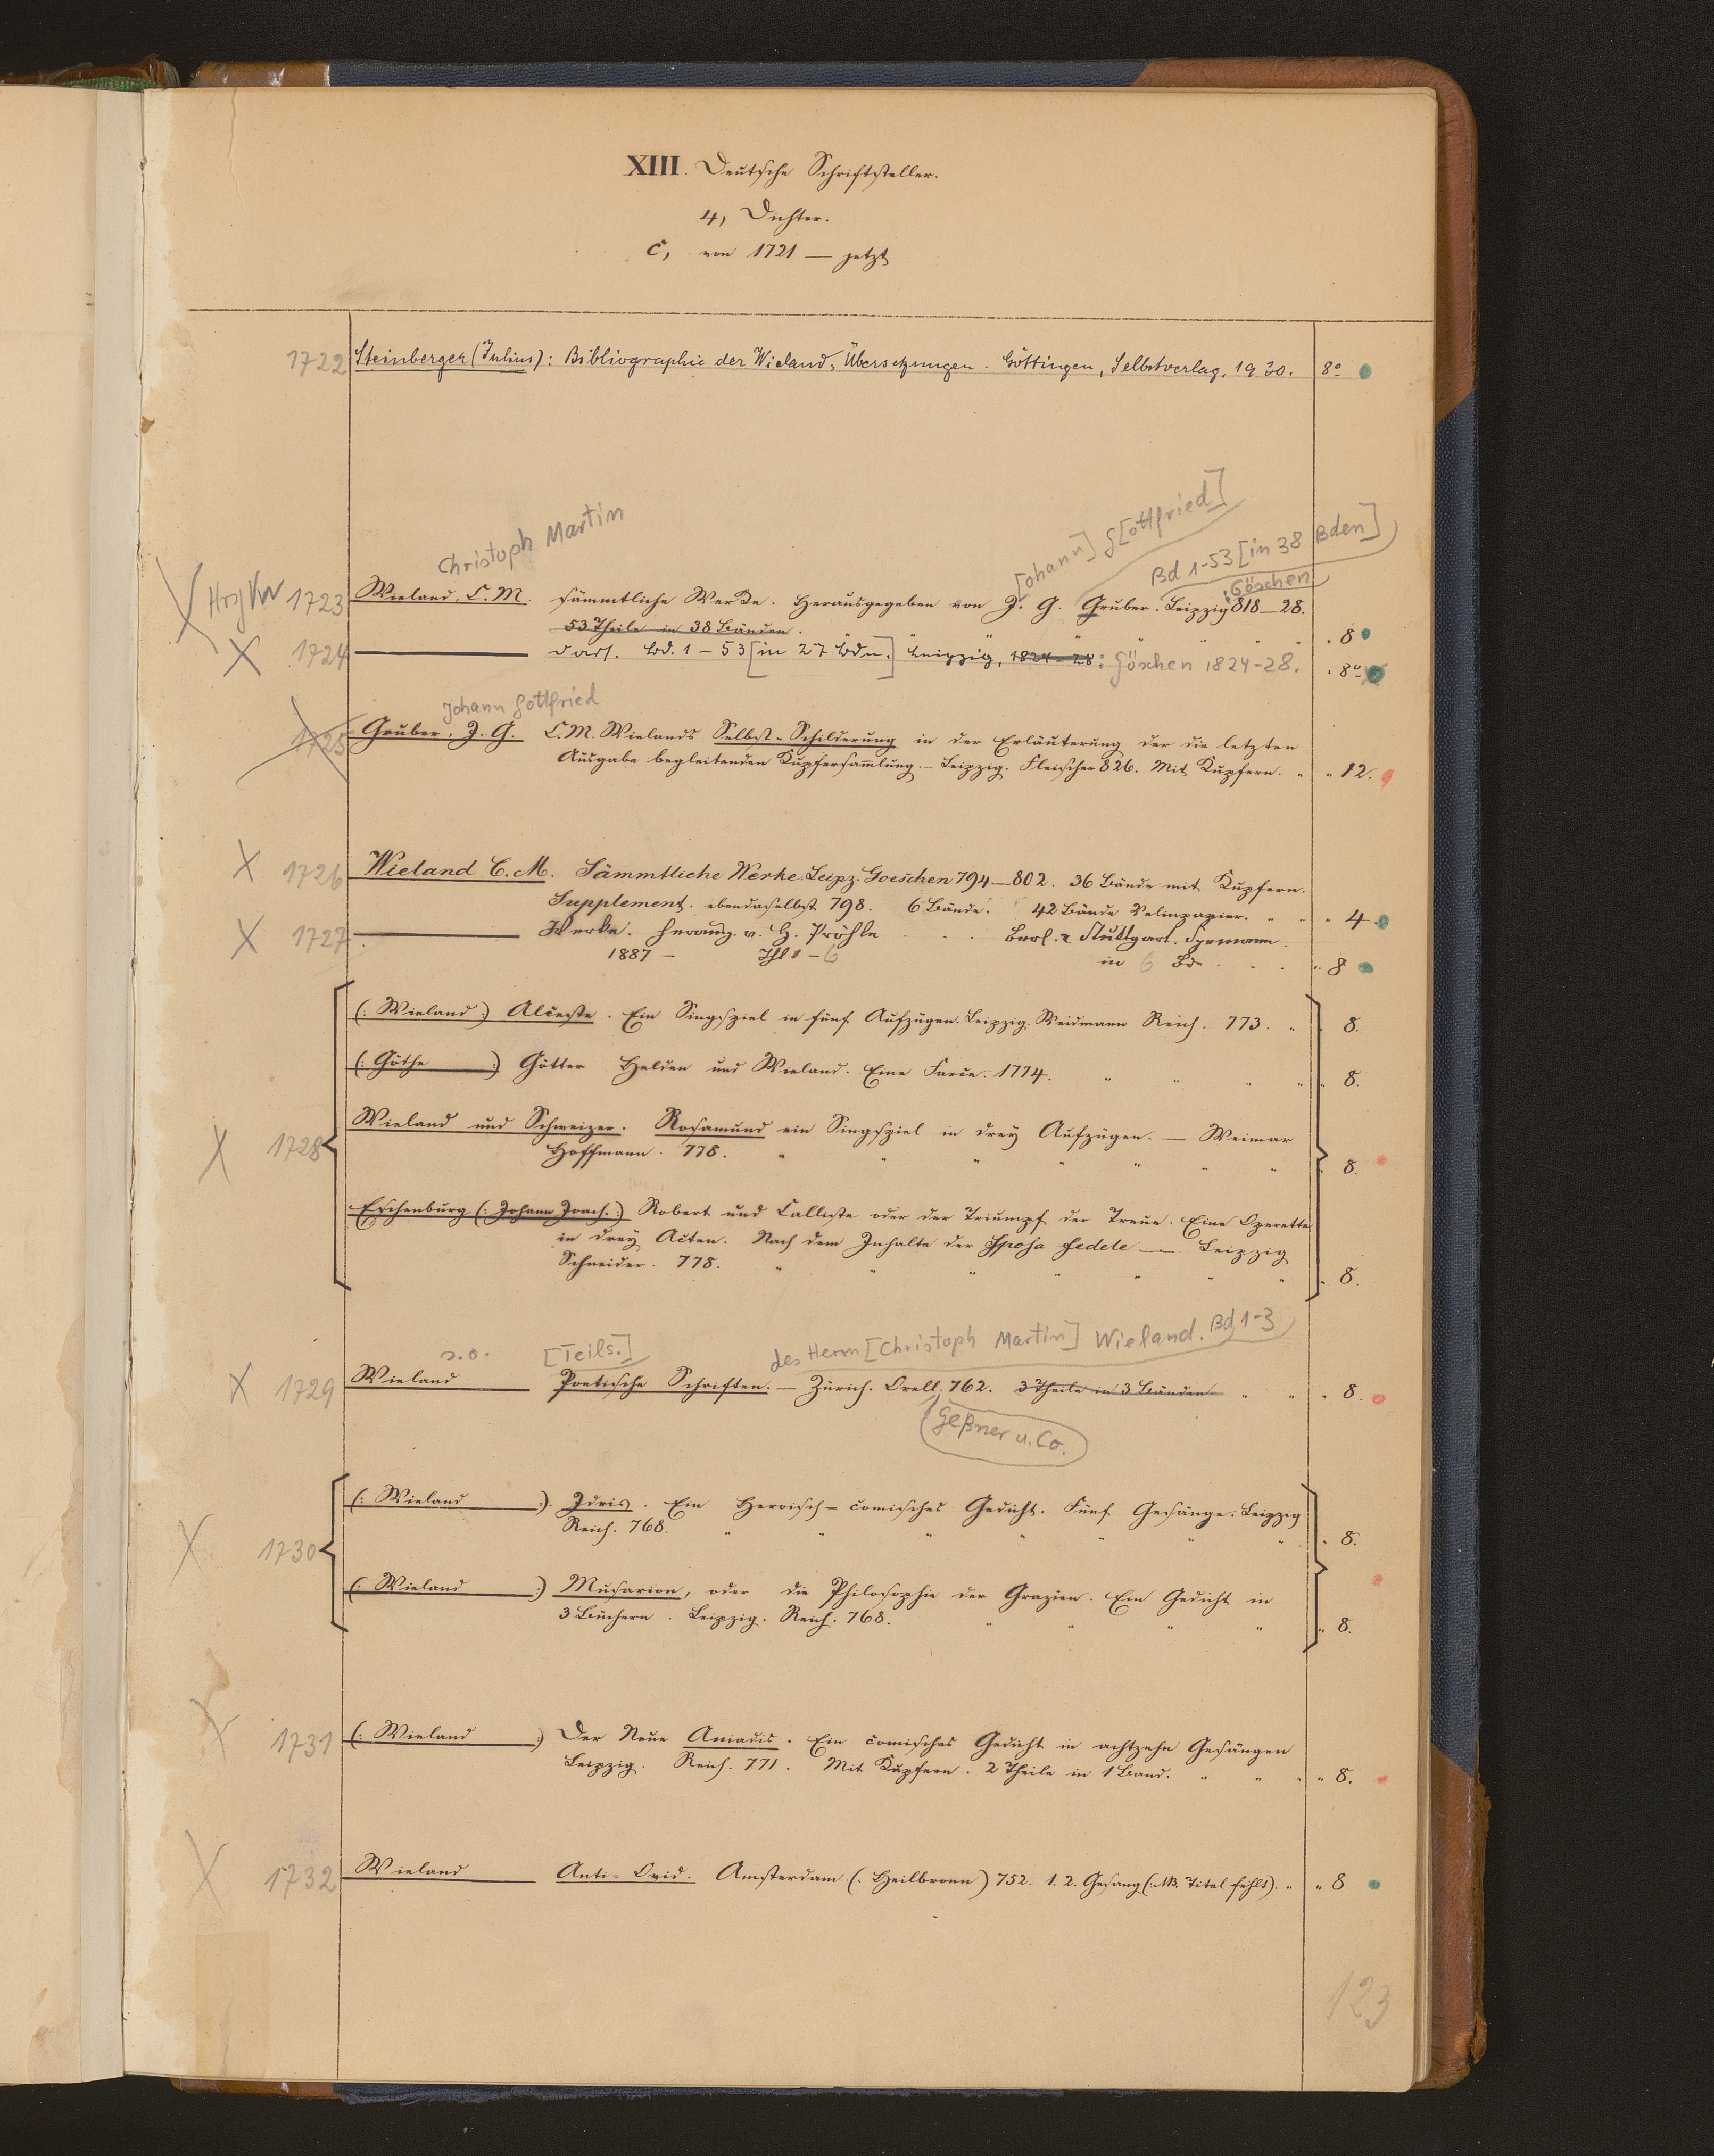 XIII. Deutsche Schriftsteller.
4, Dichter.
C, von 1721 — jetzt
1722 Steinberger (Julius): Bibliographie der Wieland-Übersetzungen. Göttingen, Selbstverlag, 1930. 8°
Christoph Martin
[ohann] G[ottfried]
Bd 1-53 [in 38 Bden]
: Göschen
X 1723 Wieland, C. M. Sämmtliche Werke. Herausgegeben von J. G. Gruber. Leipzig 818—28.
53 Theile in 38 Bänden. " " " " " " 8
X 1724 ——— Dass. Bd. 1-53 [in 27 Bdn.] Leipzig, 1824-28: Göschen 1824-28. 8°
Johann Gottfried
1725 Gruber, J. G. C. M. Wielands Selbst-Schilderung in der Erläuterung der die letzten
Ausgabe begleitenden Kupfersammlung. — Leipzig. Fleischer 826. Mit Kupfern. " " 12.
X 1726 Wieland C. M. Sämmtliche Werke. Leipz. Goeschen 794—802. 36 Bände mit Kupfern.
Supplement. ebendaselbst 798. 6 Bände. 42 Bände Velinpapier. " " " 4.
X 1727 ——— Werke. Herausg. v. H. Pröhle . . . Berl. & Stuttgart. Spemann.
1887 — Thl 1-6 in 6 Bdn . . . " 8
(: Wieland :) Alceste. Ein Singspiel in fünf Aufzügen. Leipzig. Weidmann Reich. 773. " 8.
(: Göthe :) Götter Helden und Wieland. Eine Farce. 1774. " " " " " 8.
X 1728 Wieland und Schweizer. Rosamund ein Singspiel in drey Aufzügen. — Weimar
Hoffmann. 778. " " " " " " " 8.
Eschenburg (: Johann Joach. :) Robert und Calliste oder der Triumpf der Treue. Eine Operette
in drey Acten. Nach dem Inhalte der Sposa fedele — Leipzig
Schneider. 778. " " " " " " " " 8.
s. o. [Teils.] des Herrn [Christoph Martin] Wieland. Bd 1-3
X 1729 Wieland ——— Poetische Schriften. — Zürich. Orell. 762. 3 Theile in 3 Bänden " " " 8.
Geßner u. Co.
(: Wieland :). Idris. Ein Heroisch-comisches Gedicht. Fünf Gesänge. Leipzig
Reich. 768. " " " " " " " " 8.
X 1730
(: Wieland :) Musarion, oder die Philosophie der Grazien. Ein Gedicht in
3 Büchern. Leipzig. Reich. 768. " " " " " 8.
X 1731 (: Wieland :) Der Neue Amadis. Ein comisches Gedicht in achtzehn Gesängen
Leipzig. Reich. 771. Mit Kupfern. 2 Theile in 1 Band. " " " " 8.
X 1732 Wieland ——— Anti-Ovid. Amsterdam (: Heilbronn) 752. 1. 2. Gesang (: NB. Titel fehlt). " " 8
123